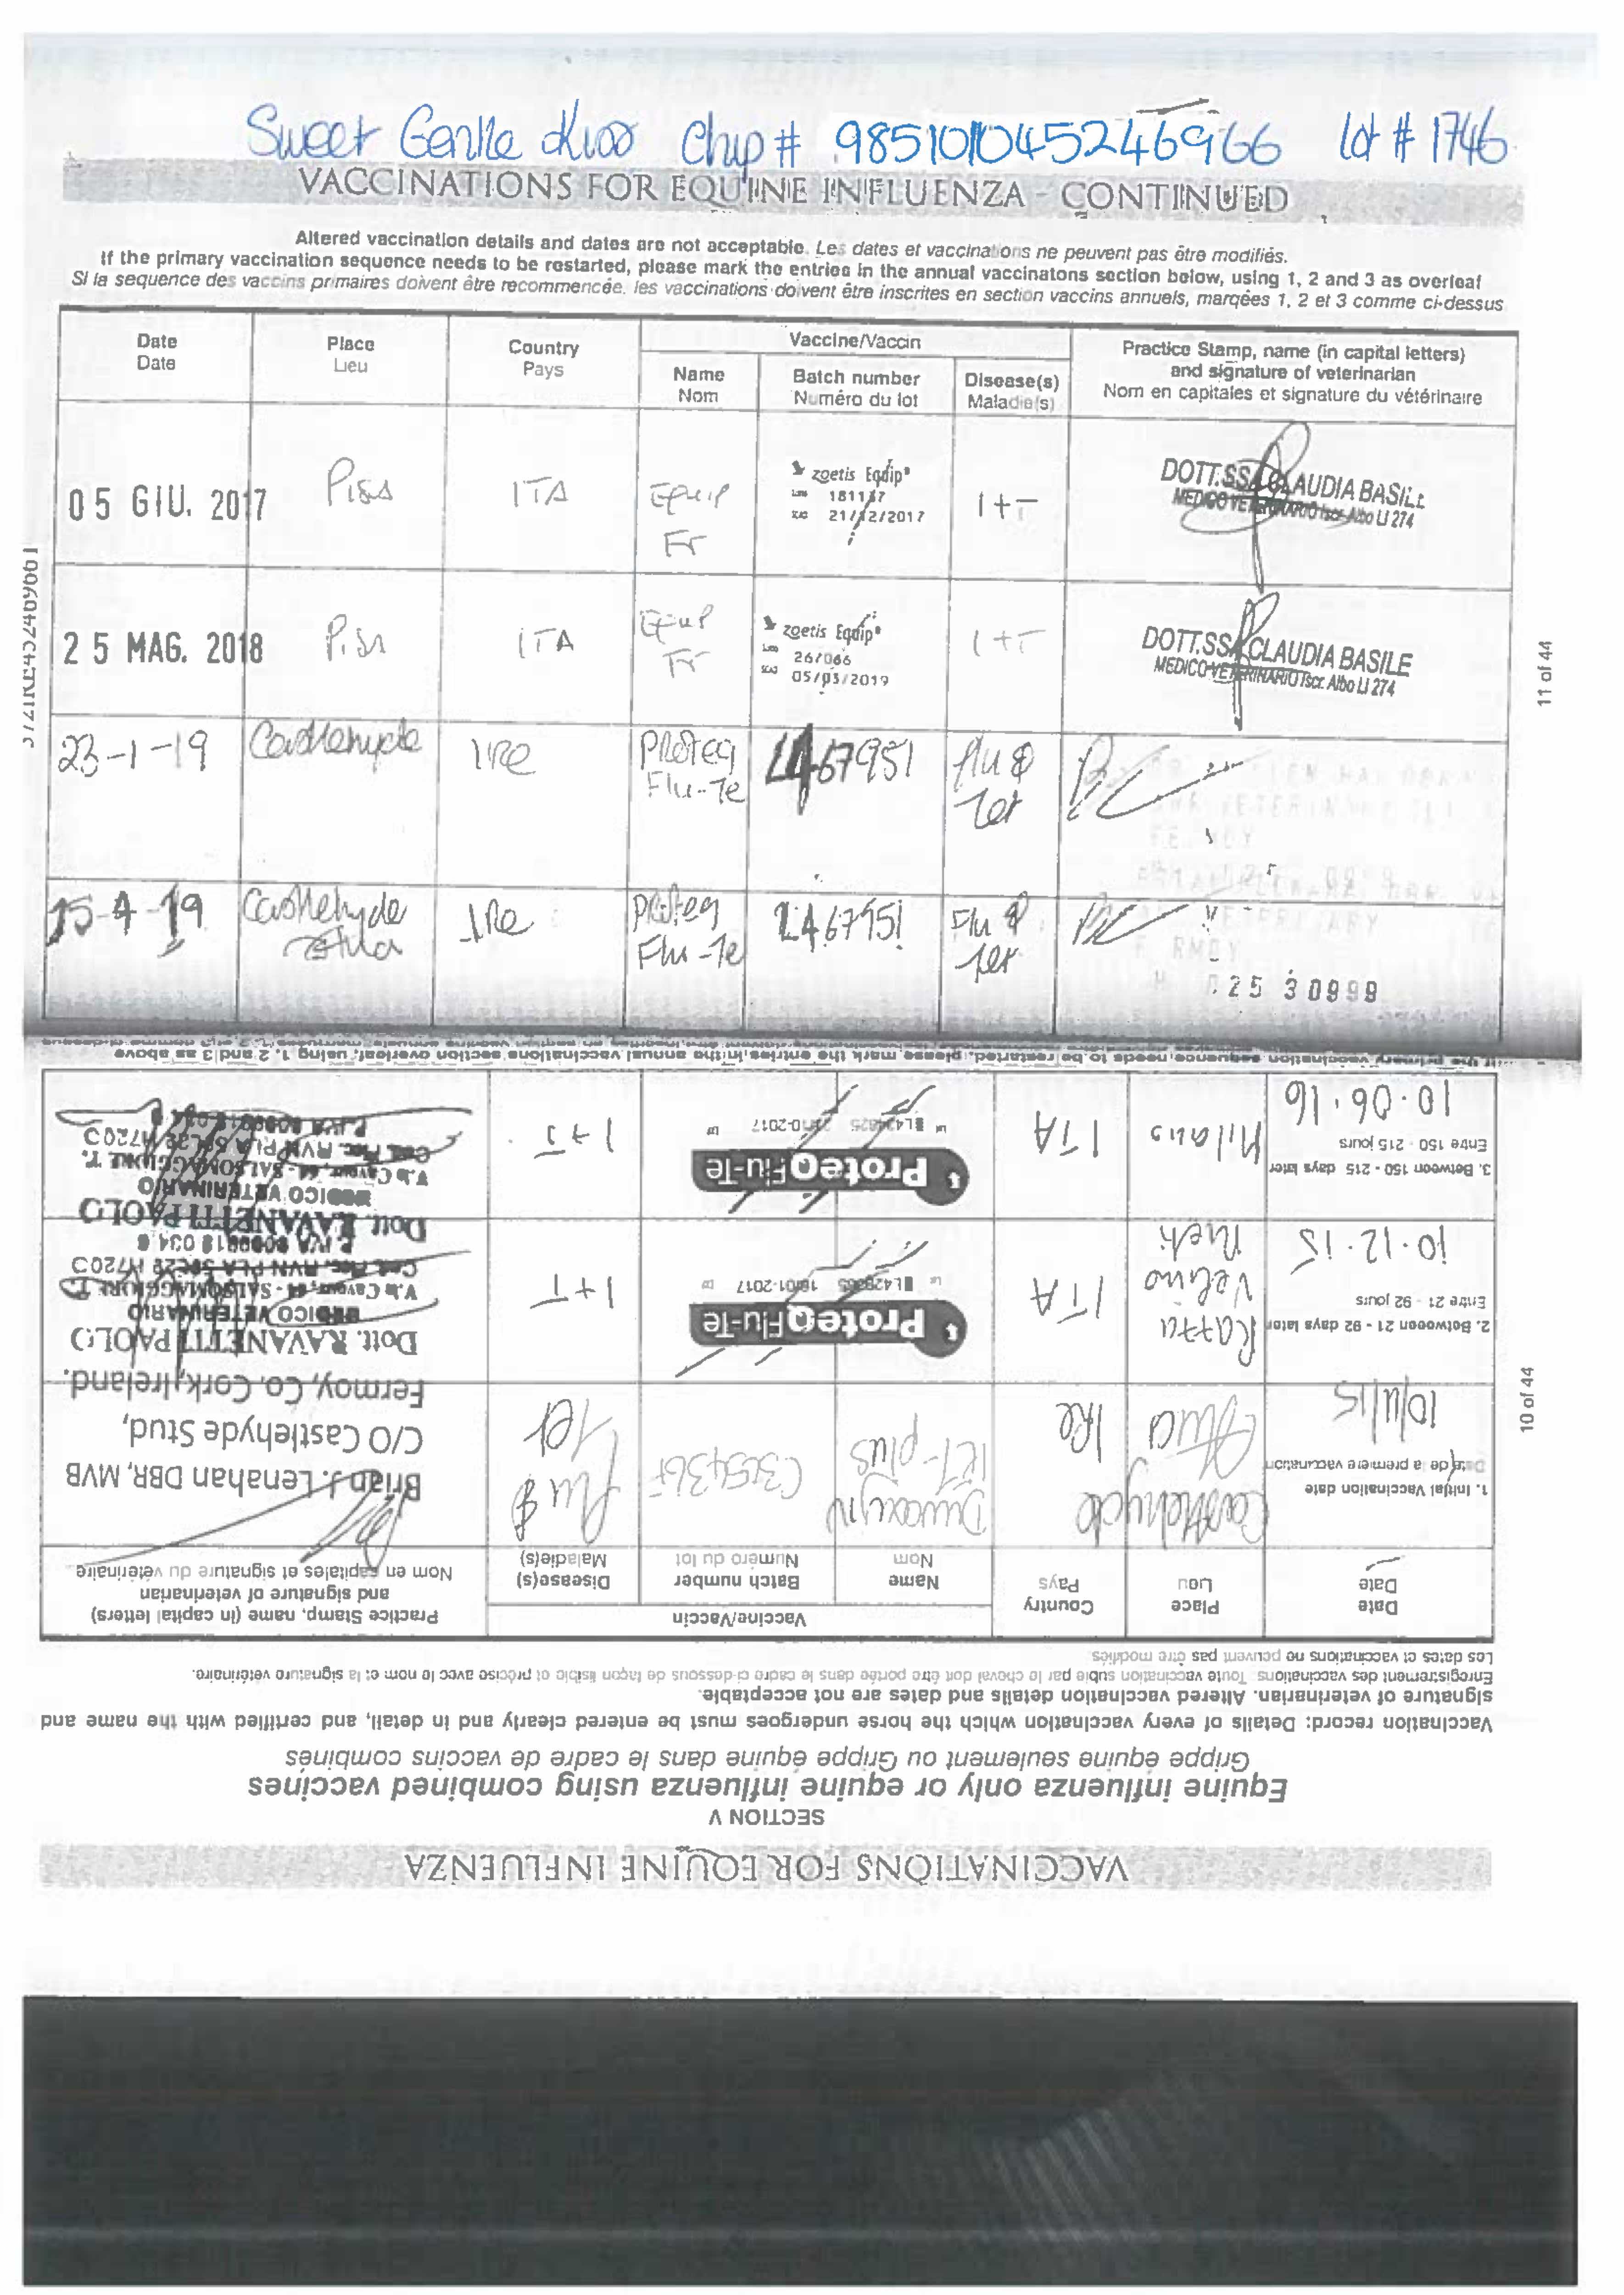 Sweet Gentle Kiss Chip # 985101045246966 Lot # 1746
VACCINATIONS FOR EQUINE INFLUENZA - CONTINUED
Altered vaccination details and dates are not acceptable. Les dates et vaccinations ne peuvent pas être modifiés.
If the primary vaccination sequence needs to be restarted, please mark the entries in the annual vaccinatons section below, using 1, 2 and 3 as overleaf
Si la sequence des vaccins primaires doivent être recommencée, les vaccinations doivent être inscrites en section vaccins annuels, marqées 1, 2 et 3 comme ci-dessus
Date Place Country Vaccine/Vaccin Practice Stamp, name (in capital letters)
Date Lieu Pays Name Batch number Disease(s) and signature of veterinarian
Nom Numéro du lot Maladie(s) Nom en capitales et signature du vétérinaire
05 GIU. 2017 Pisa ITA Equip FT zoetis Equip 181137 21/12/2017 I+T DOTT.SSA CLAUDIA BASILE
MEDICO VETERINARIO Iscr. Albo LI 274
25 MAG. 2018 Pisa ITA Equip FT zoetis Equip 267066 05/03/2019 I+T DOTT.SSA CLAUDIA BASILE
MEDICO VETERINARIO Iscr. Albo LI 274
23-1-19 Castlehyde IRe Proteq Flu-Te L467951 flu & Tet
15-4-19 Castlehyde Stud IRe Proteq Flu-Te L467951 Flu & Tet
25 30999
11 of 44
VACCINATIONS FOR EQUINE INFLUENZA
SECTION V
Equine influenza only or equine influenza using combined vaccines
Grippe équine seulement ou Grippe équine dans le cadre de vaccins combinés
Vaccination record: Details of every vaccination which the horse undergoes must be entered clearly and in detail, and certified with the name and
signature of veterinarian. Altered vaccination details and dates are not acceptable.
Enregistrement des vaccinations: Toute vaccination subie par le cheval doit être portée dans le cadre ci-dessous de façon lisible et précise avec le nom et la signature vétérinaire.
Les dates et vaccinations ne peuvent pas être modifiés.
Date Place Country Vaccine/Vaccin Practice Stamp, name (in capital letters)
Date Lieu Pays Name Batch number Disease(s) and signature of veterinarian
Nom Numéro du lot Maladie(s) Nom en capitales et signature du vétérinaire
1. Initial Vaccination date
Date de la première vaccination
10/11/15 Castlehyde Stud IRe Duvaxyn IET-plus Flu & Tet
Brian J. Lenahan DBR, MVB
C/O Castlehyde Stud,
Fermoy, Co. Cork, Ireland.
2. Between 21 - 92 days later
Entre 21 - 92 jours
10.12.15 Velino Rieti ITA ProteqFlu-Te I+T
Dott. RAVANETTI PAOLO
MEDICO VETERINARIO
V.le Cavour, - SALSOMAGGIORE T.
3. Between 150 - 215 days later
Entre 150 - 215 jours
10.06.16 Milano ITA ProteqFlu-Te I+T
Dott. RAVANETTI PAOLO
MEDICO VETERINARIO
V.le Cavour, - SALSOMAGGIORE T.
If the primary vaccination sequence needs to be restarted, please mark the entries in the annual vaccinations section overleaf, using 1, 2 and 3 as above
10 of 44